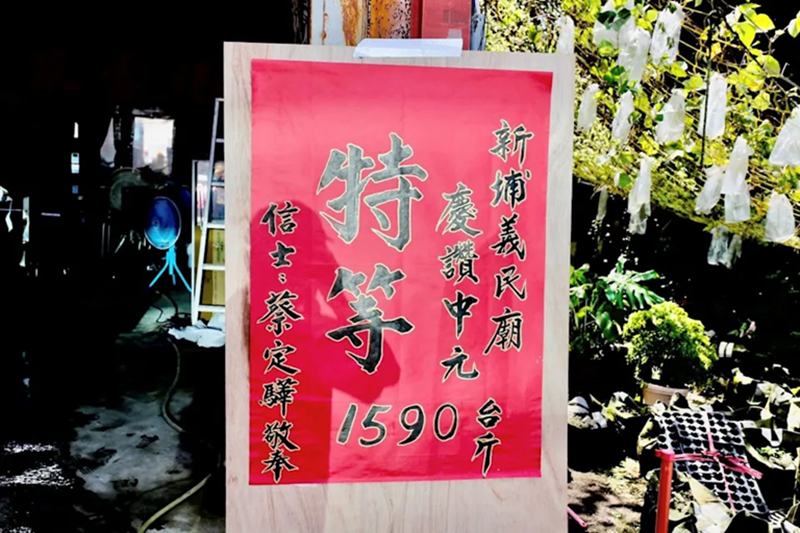 新埔義民廟
慶讚中元
特等
1590台斤
信士：蔡定驊敬奉